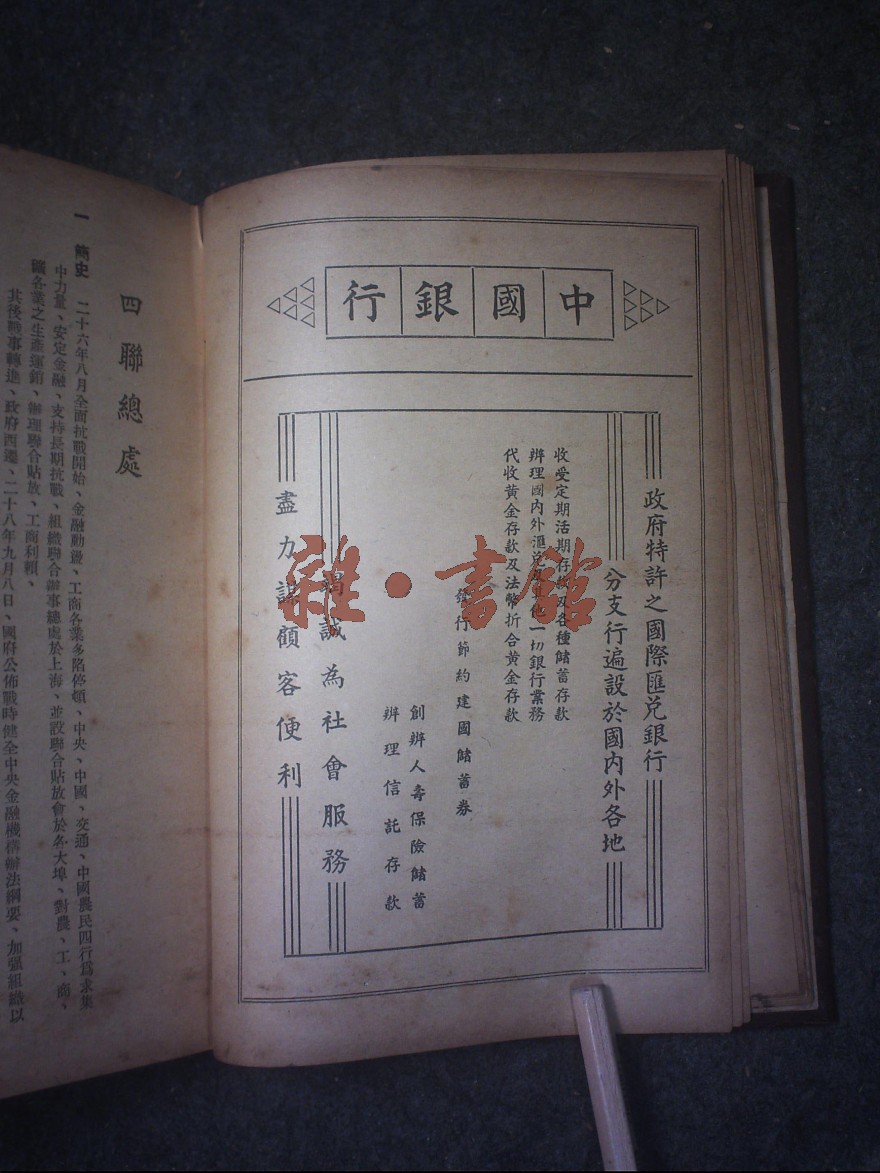 中國銀行
政府特許之國際匯兌銀行
分支行遍設於國內外各地
收受定期活期存款及各種儲蓄存款
辦理國內外滙兌及其他一切銀行業務
代收黃金存款及法幣折合黃金存款
發行節約建國儲蓄券
創辦人壽保險儲蓄
辦理信託存款
竭誠為社會服務
盡力謀顧客便利
雜·書館
四聯總處
一 簡史 二十六年八月全面抗戰開始、金融動盪、工商各業多陷停頓、中央、中國、交通、中國農民四行為求集
中力量、安定金融、支持長期抗戰、組織聯合辦事總處於上海、並設聯合貼放會於各大埠、對農、工、商、
鑛各業之生產運銷、辦理聯合貼放、工商利賴、
其後戰事轉進、政府西遷、二十八年九月八日、國府公佈戰時健全中央金融機構辦法綱要、加强組織以